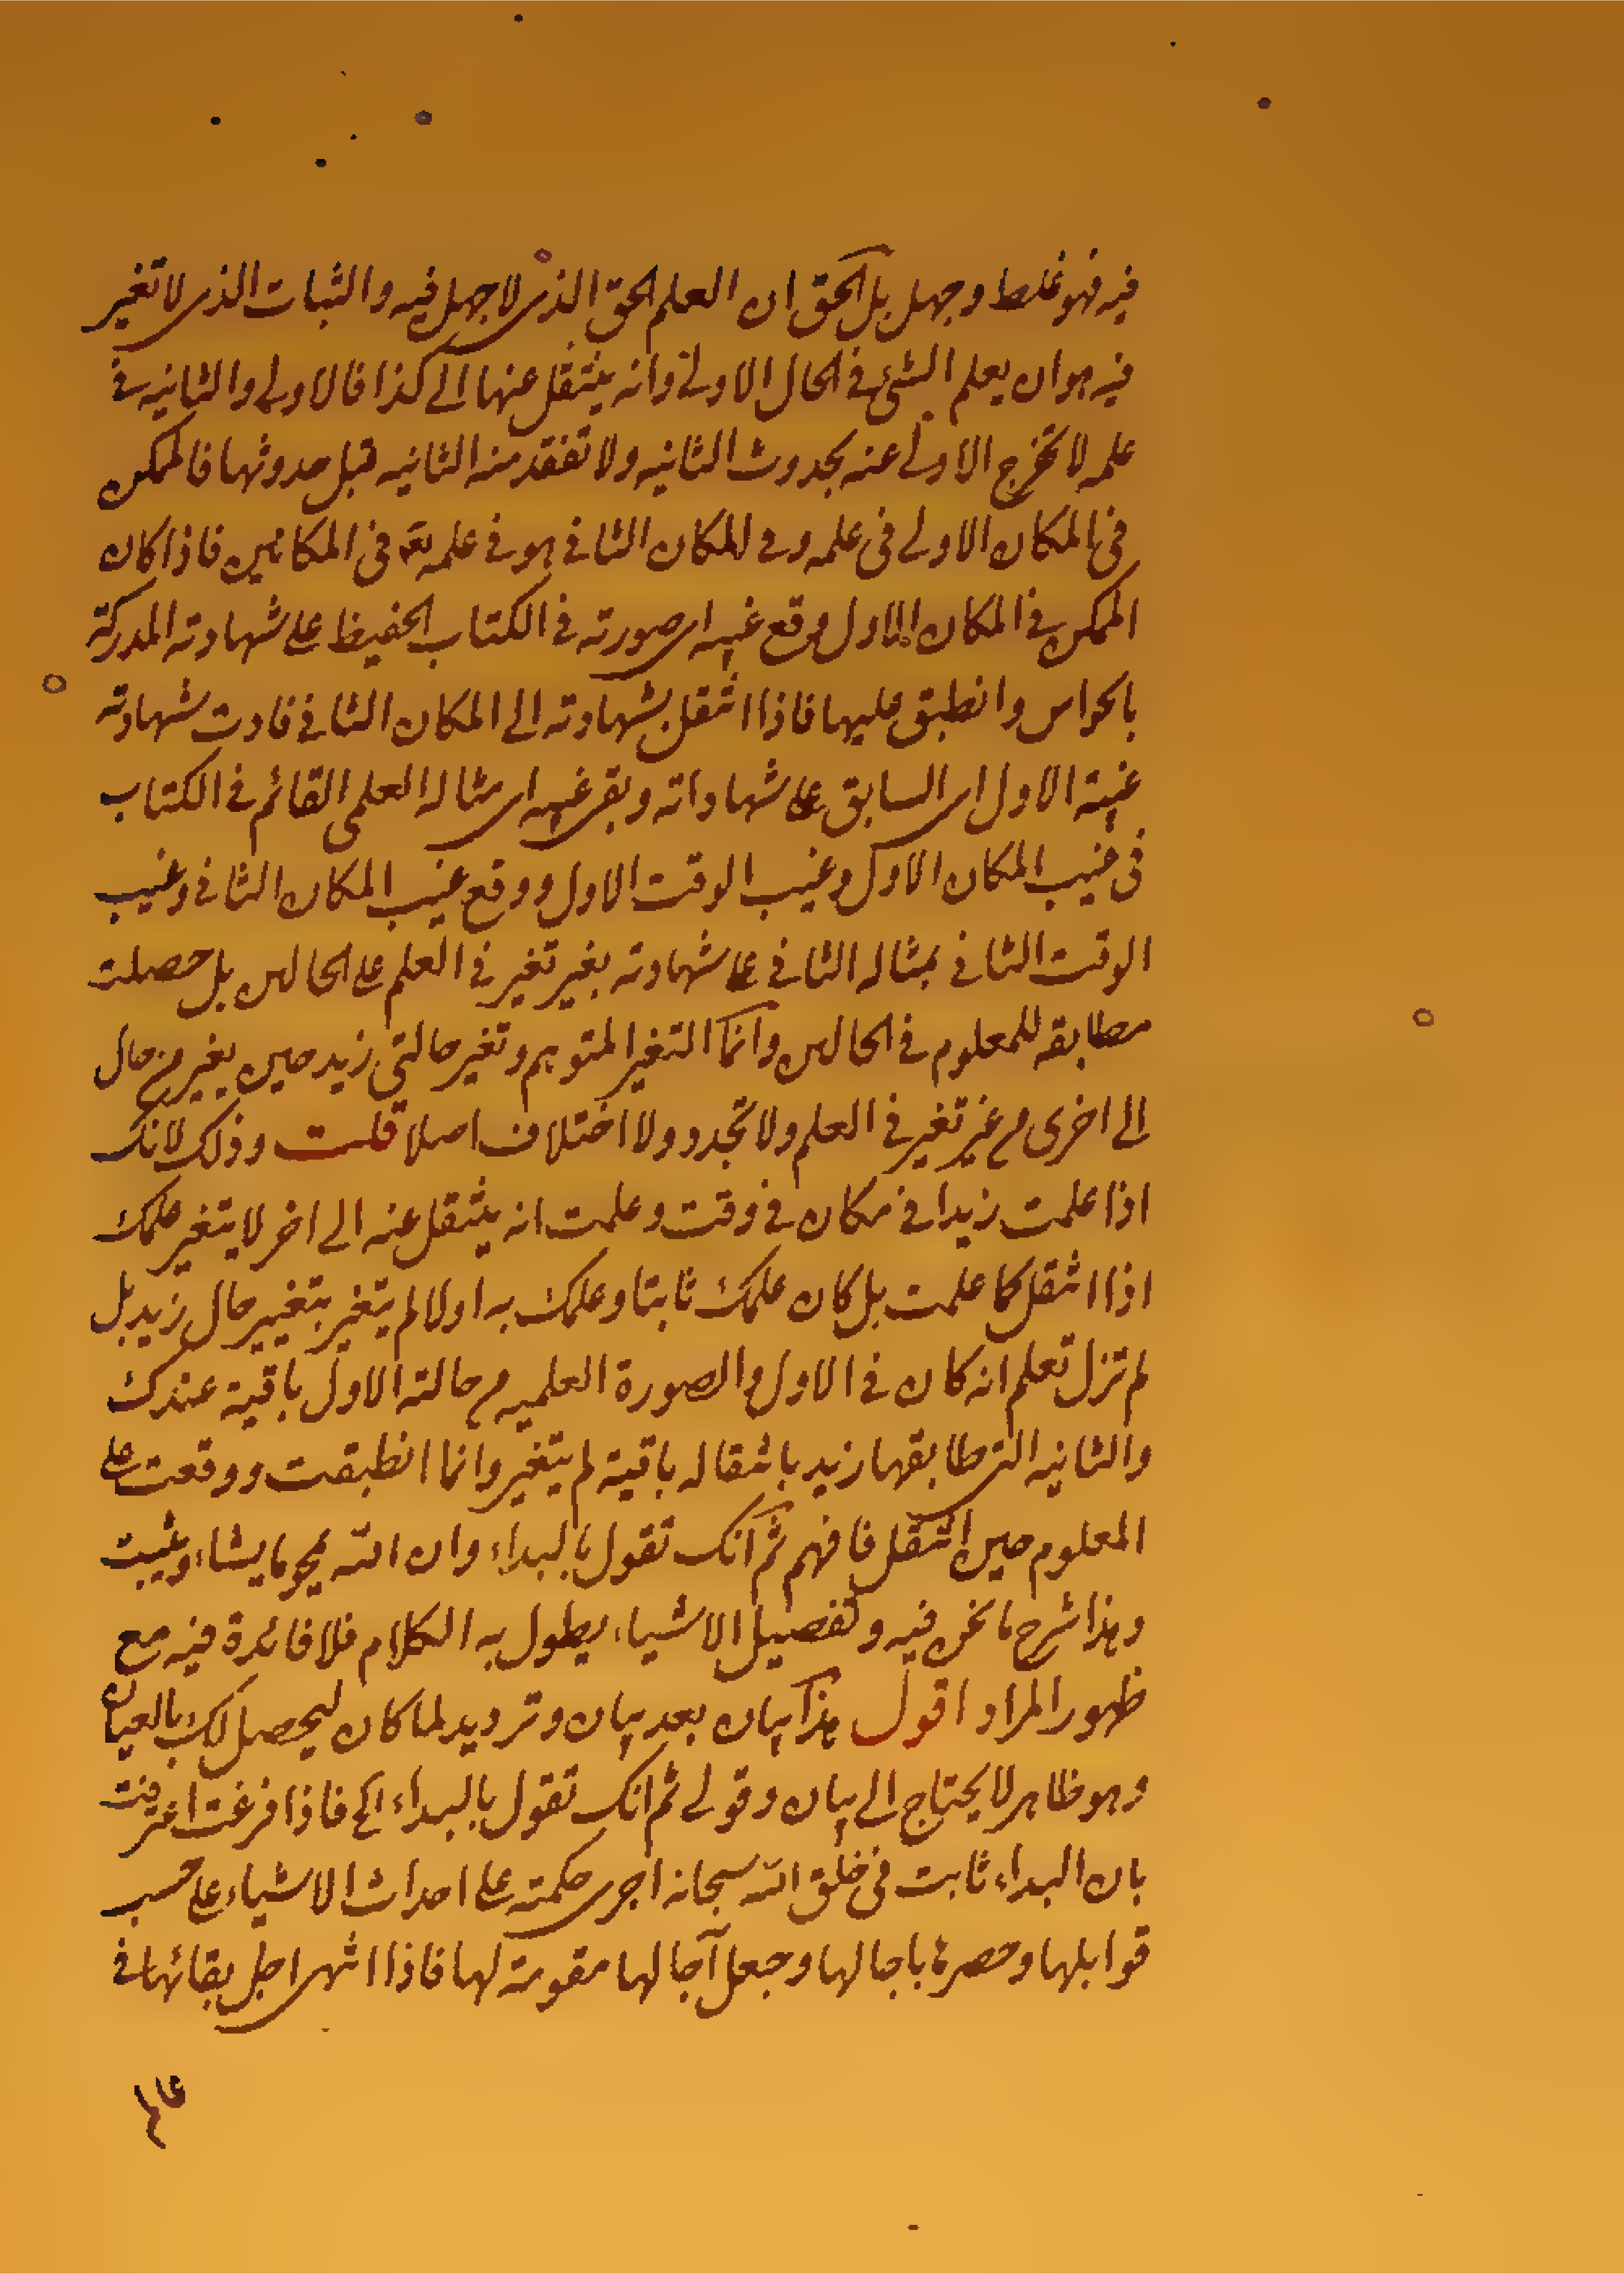 فيه فهو غلط وجهل بل الحق ان العلم الحق الذى لا جهل فيه والثبات الذى لا تغير
فيه هو ان يعلم الشئ فى الحال الاولى وانه ينتقل عنها الى كذا فالاولى والثانيه فى
علمه لا تخرج الاولى عنه بحدوث الثانيه ولا تفقد منه الثانيه قبل حدوثها فالممكن
فى المكان الاول فى علمه وفى المكان الثانى هو فى علمه تع فى المكانين فاذا كان
الممكن فى المكان الاول وقع غيبه اى صورته فى الكتاب الحفيظ على شهادته المدركة
بالحواس وانطبق عليها فاذا انتقل بشهادته الى المكان الثانى فادت شهادته
غيبة الاول اى السابق على شهاداته وبقى غيبه اى مثاله العلمى القائم فى الكتاب
فى غيب المكان الاول وغيب الوقت الاول ووقع غيب المكان الثانى وغيب
الوقت الثانى بمثاله الثانى على شهادته بغير تغير فى العلم على الحالين بل حصلت
مطابقه للمعلوم فى الحالين وانما التغير المتوهم وتغير حالتى زيد حين يغير من حال
الى اخرى من غير تغير فى العلم ولا تجدد ولا اختلاف اصلا قلت وذلك لانك
اذا علمت زيدا فى مكان فى وقت وعلمت انه ينتقل عنه الى اخر لا يتغير علمك
اذا انتقل كما علمت بل كان علمك ثابتا وعلمك به اولا لم يتغير بتغيير حال زيد بل
لم تزل تعلم انه كان فى الاول والصورة العلميه من حالته الاول باقية عندك
والثانيه التى طابقها زيد بانتقاله باقية لم يتغير وانما انطبقت ووقعت على
المعلوم حين انتقل فافهم ثم انك تقول بالبداء وان الله يمحو ما يشاء ويثبت
وهذا شرح ما نحن فيه وتفصيل الاشياء يطول به الكلام فلا فائدة فيه مع
ظهور المراد اقول هذا بيان بعد بيان وترديد لما كان ليحصل لك بالعيان
وهو ظاهر لا يحتاج الى بيان وقولى ثم انك تقول بالبداء الخ فاذا فرغت اعترفت
بان البداء ثابت فى خلق الله سبحانه اجرى حكمته على احداث الاشياء على حسب
قوابلها وحصرها باجالها وجعل آجالها مقومة لها فاذا انتهى اجل بقائها فى